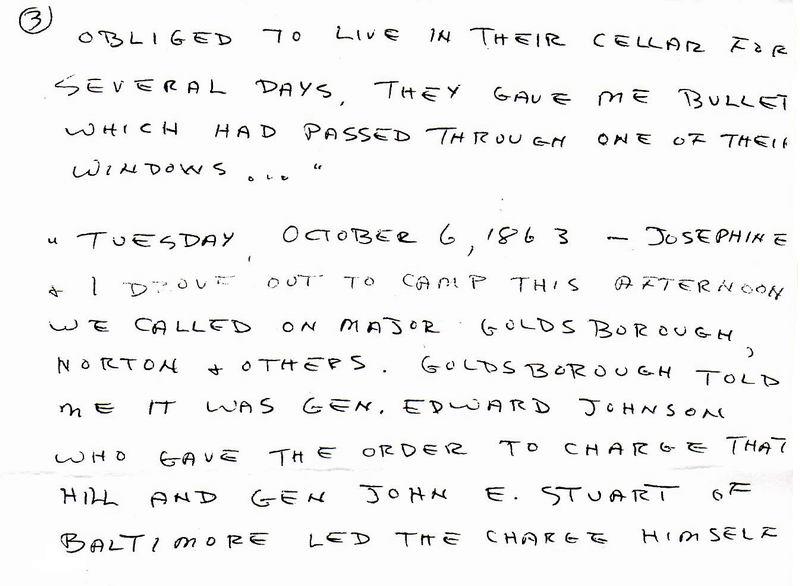 ③
OBLIGED TO LIVE IN THEIR CELLAR FOR
SEVERAL DAYS, THEY GAVE ME BULLET
WHICH HAD PASSED THROUGH ONE OF THEIR
WINDOWS ... "
" TUESDAY, OCTOBER 6, 1863 — JOSEPHINE
& I DROVE OUT TO CAMP THIS AFTERNOON
WE CALLED ON MAJOR GOLDSBOROUGH,
NORTON & OTHERS. GOLDSBOROUGH TOLD
ME IT WAS GEN. EDWARD JOHNSON
WHO GAVE THE ORDER TO CHARGE THAT
HILL AND GEN JOHN E. STUART OF
BALTIMORE LED THE CHARGE HIMSELF